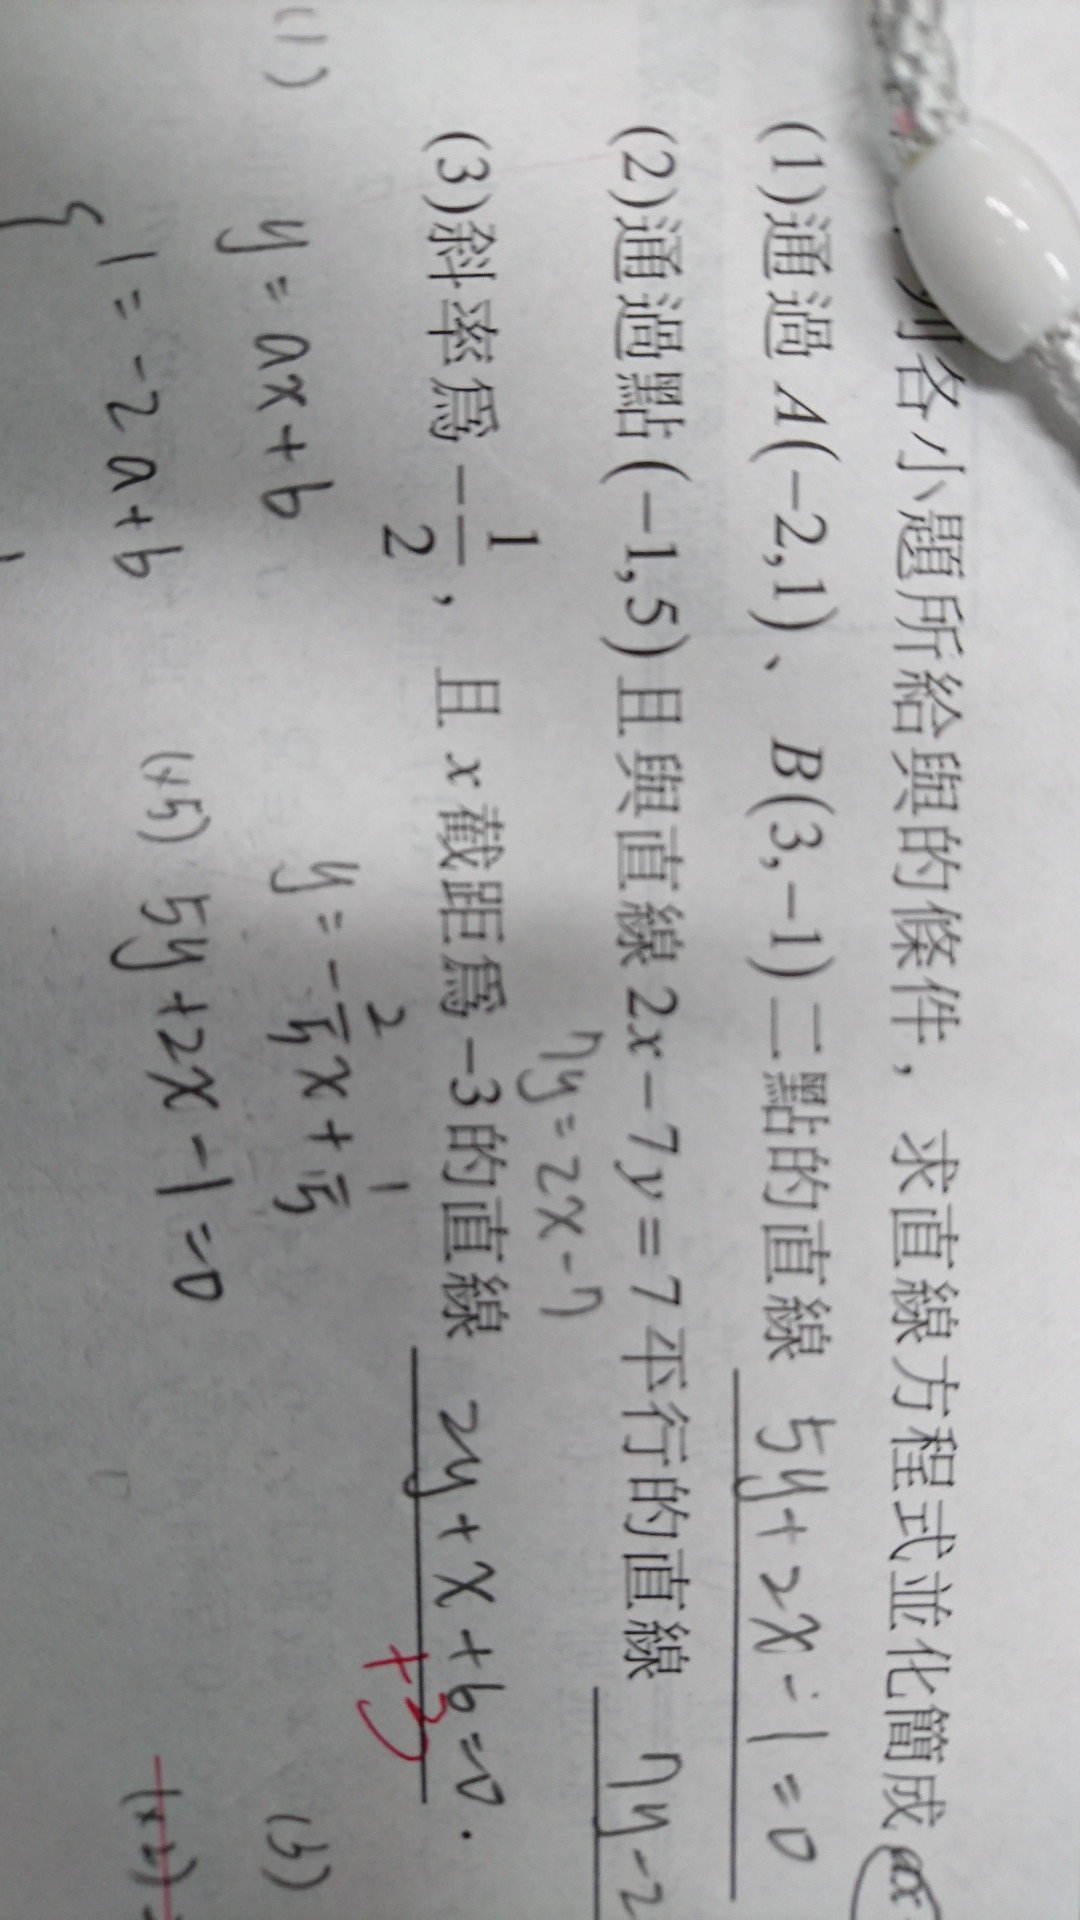 列各小題所給與的條件，求直線方程式並化簡成 ax
(1)通過 A(-2,1)、B(3,-1)二點的直線 5y+2x-1=0
(2)通過點(-1,5)且與直線 2x-7y=7 平行的直線 7y-2
7y=2x-7
(3)斜率為 -1/2，且 x 截距為 -3 的直線 2y+x+6=0.
+3
(1) y=ax+b
y=-2/5x+1/5
(3)
1=-2a+b
(x5) 5y+2x-1=0
(x2)